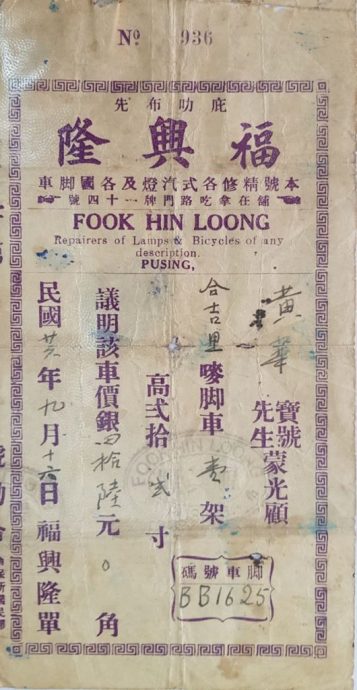 Nº 936
先布叻庇
隆興福
車脚國各及燈汽式各修精號本
號四十一牌門路吃拿在舖
FOOK HIN LOONG
Repairers of Lamps & Bicycles of any
description.
PUSING,
黃華
寶號
先生蒙光顧
合吉里嘜脚車壹架
高弍拾弍寸
議明該車價銀四拾陸元0角
民國廿六年九月十六日福興隆單
碼號車脚
BB1625